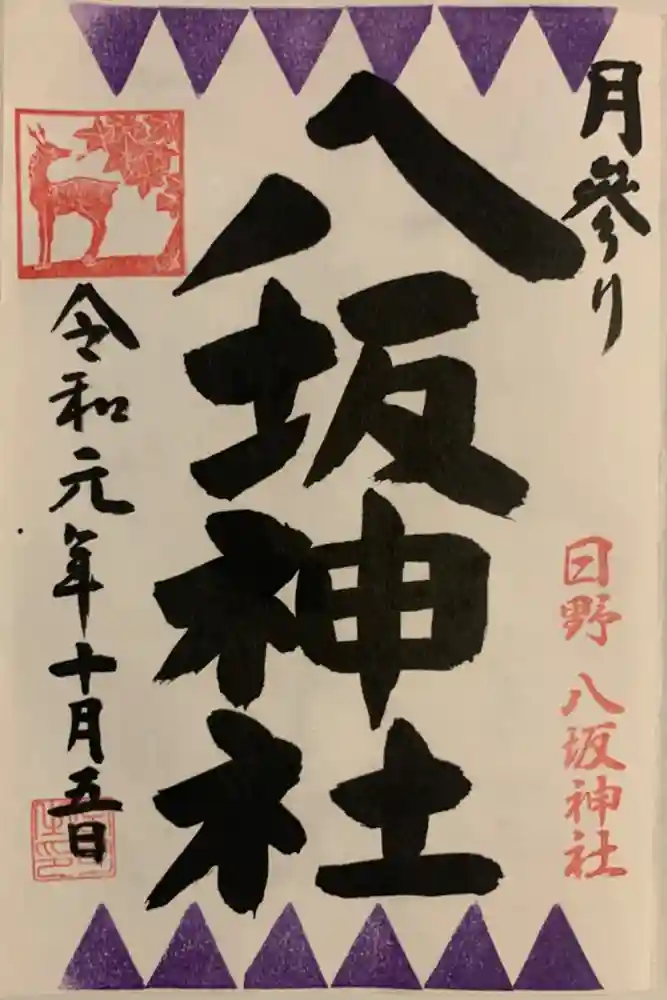 月参り
日野 八坂神社
八坂神社
令和元年十月五日